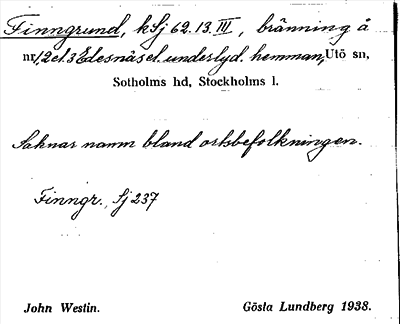 Finngrund, kSj 62.13.III, bränning å
nr 1, 2 et. 3 Edesnäs et. underlyd. hemman, Utö sn,
Sotholms hd, Stockholms l.
Saknar namn bland ortsbefolkningen.
Finngr., Sj 237
John Westin. Gösta Lundberg 1938.